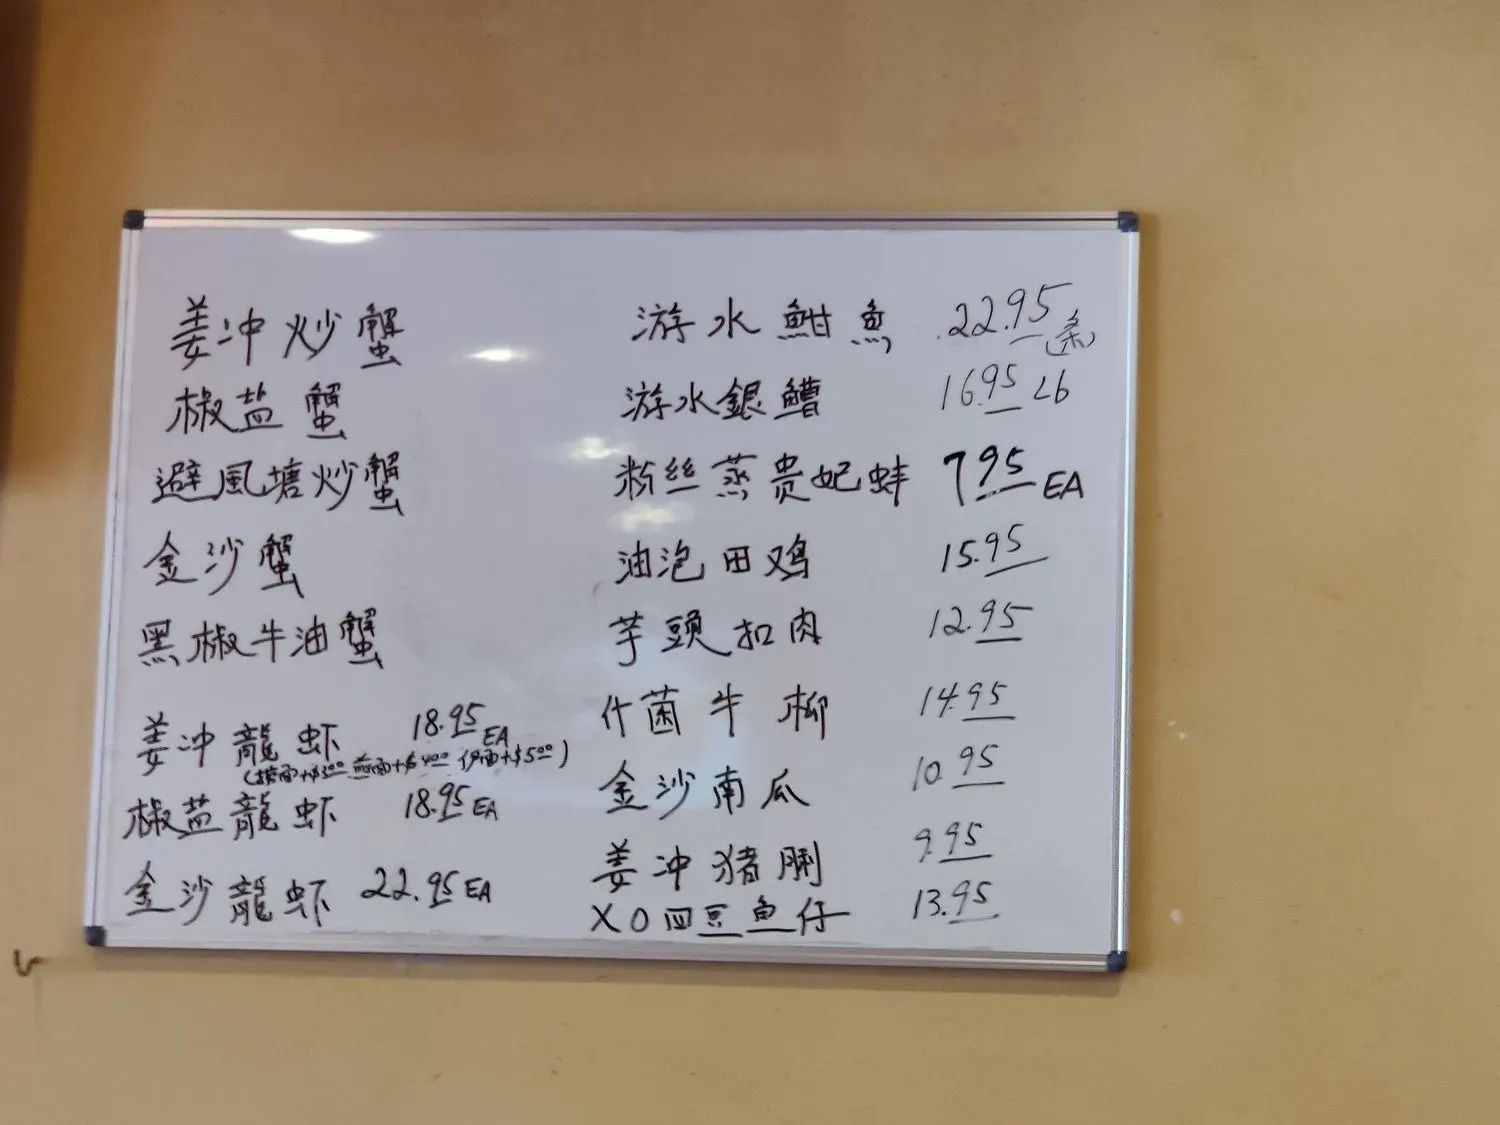 姜冲炒蟹
椒盐蟹
避風塘炒蟹
金沙蟹
黑椒牛油蟹
姜冲龍虾 18.95 EA
(揼面+$3.00 煎面+$4.00 伊面+$5.00)
椒盐龍虾 18.95 EA
金沙龍虾 22.95 EA
游水魽魚 22.95(条)
游水銀鱈 16.95 Lb
粉丝蒸贵妃蚌 7.95 EA
油泡田鸡 15.95
芋頭扣肉 12.95
什菌牛柳 14.95
金沙南瓜 10.95
姜冲猪脷 9.95
XO四豆魚仔 13.95